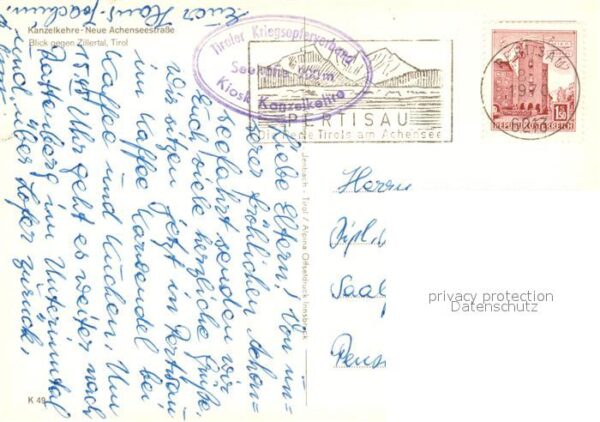 Kanzelkehre - Neue Achenseestraße
Blick gegen Zillertal, Tirol
Tiroler Kriegsopferverband
Seehöhe 900 m
Kiosk Kanzelkehre
PERTISAU
am Achensee
1970
6213
1.50
REPUBLIK ÖSTERREICH
Liebe Eltern! Von un-
serer fröhlichen Achen-
seefahrt senden wir
Euch viele herzliche Grüße.
Wir sitzen jetzt in Pertisau
im Kaffee Karwendel bei
Kaffee und Kuchen. Um
Uhr geht es weiter nach
Rattenberg im Unterinntal
und über Lofer zurück.
Euer Hans-Joachim,
und
Jenbach - Tirol / Alpina Offsetdruck Innsbruck
Herrn
Dipl.
Saal
Pens
privacy protection
Datenschutz
K 49